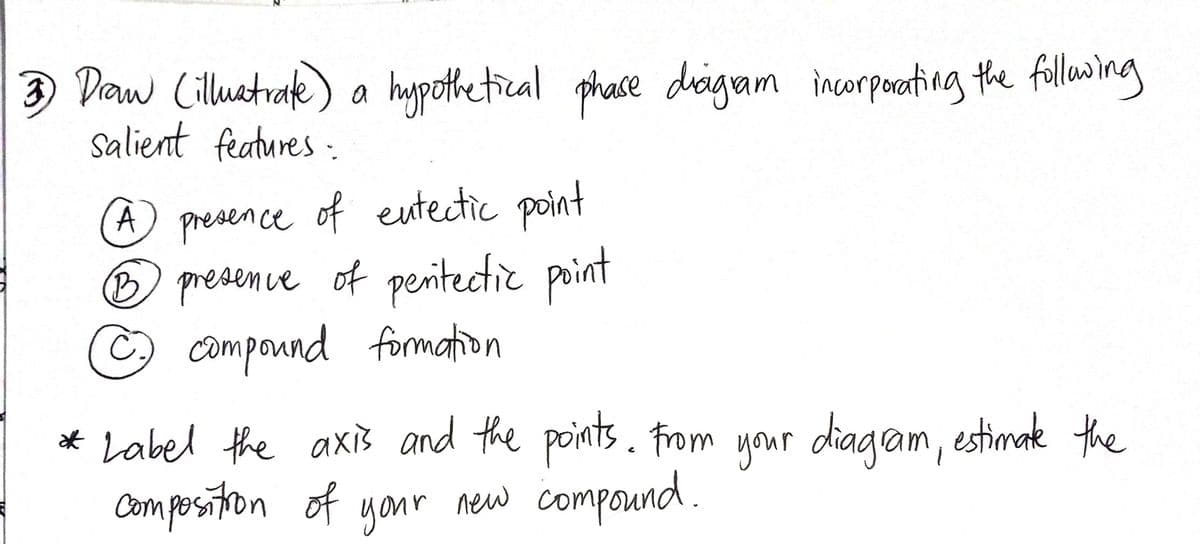 3) Draw (illustrate) a hypothetical phase diagram incorporating the following
salient features:
A presence of eutectic point
B presence of peritectic point
C. compound formation
* Label the axis and the points. From your diagram, estimate the
composition of your new compound.